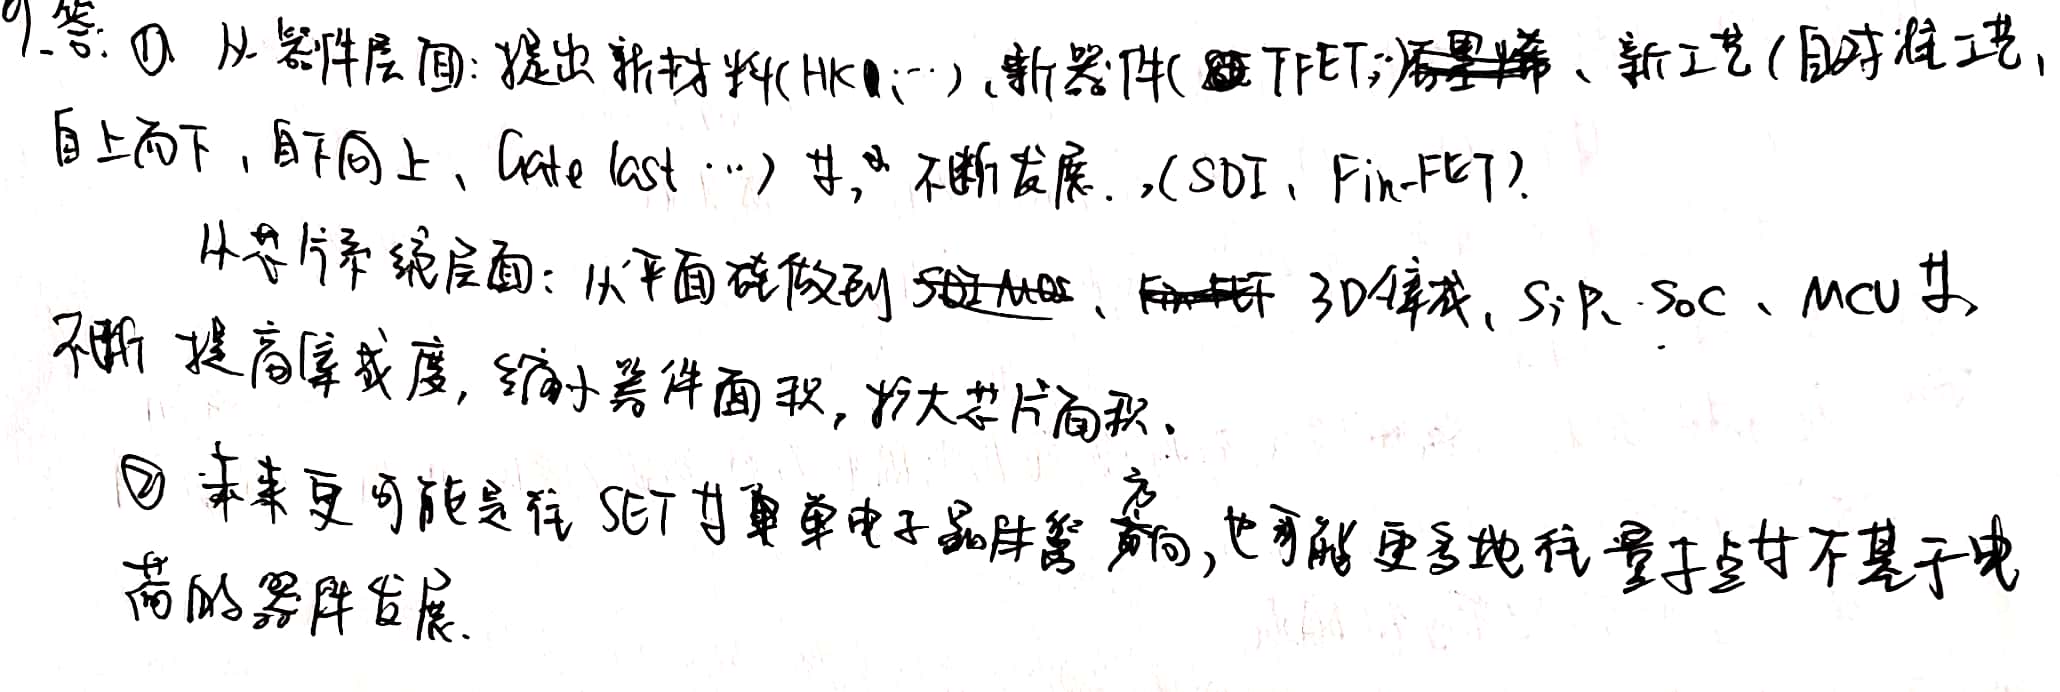 9.答: ① 从器件层面:提出新材料(HK、…)、新器件(TFET…)、新工艺(自对准工艺,
自上而下,自下向上、Gate last …)等,不断发展.,(SOI、Fin-FET).
从芯片系统层面:从平面硅做到 3D集成、SiP、SoC、MCU等,
不断提高集成度,缩小器件面积,扩大芯片面积.
② 未来更可能是往SET等单电子晶体管方向,也可能更多地往量子点等不基于电
荷的器件发展.